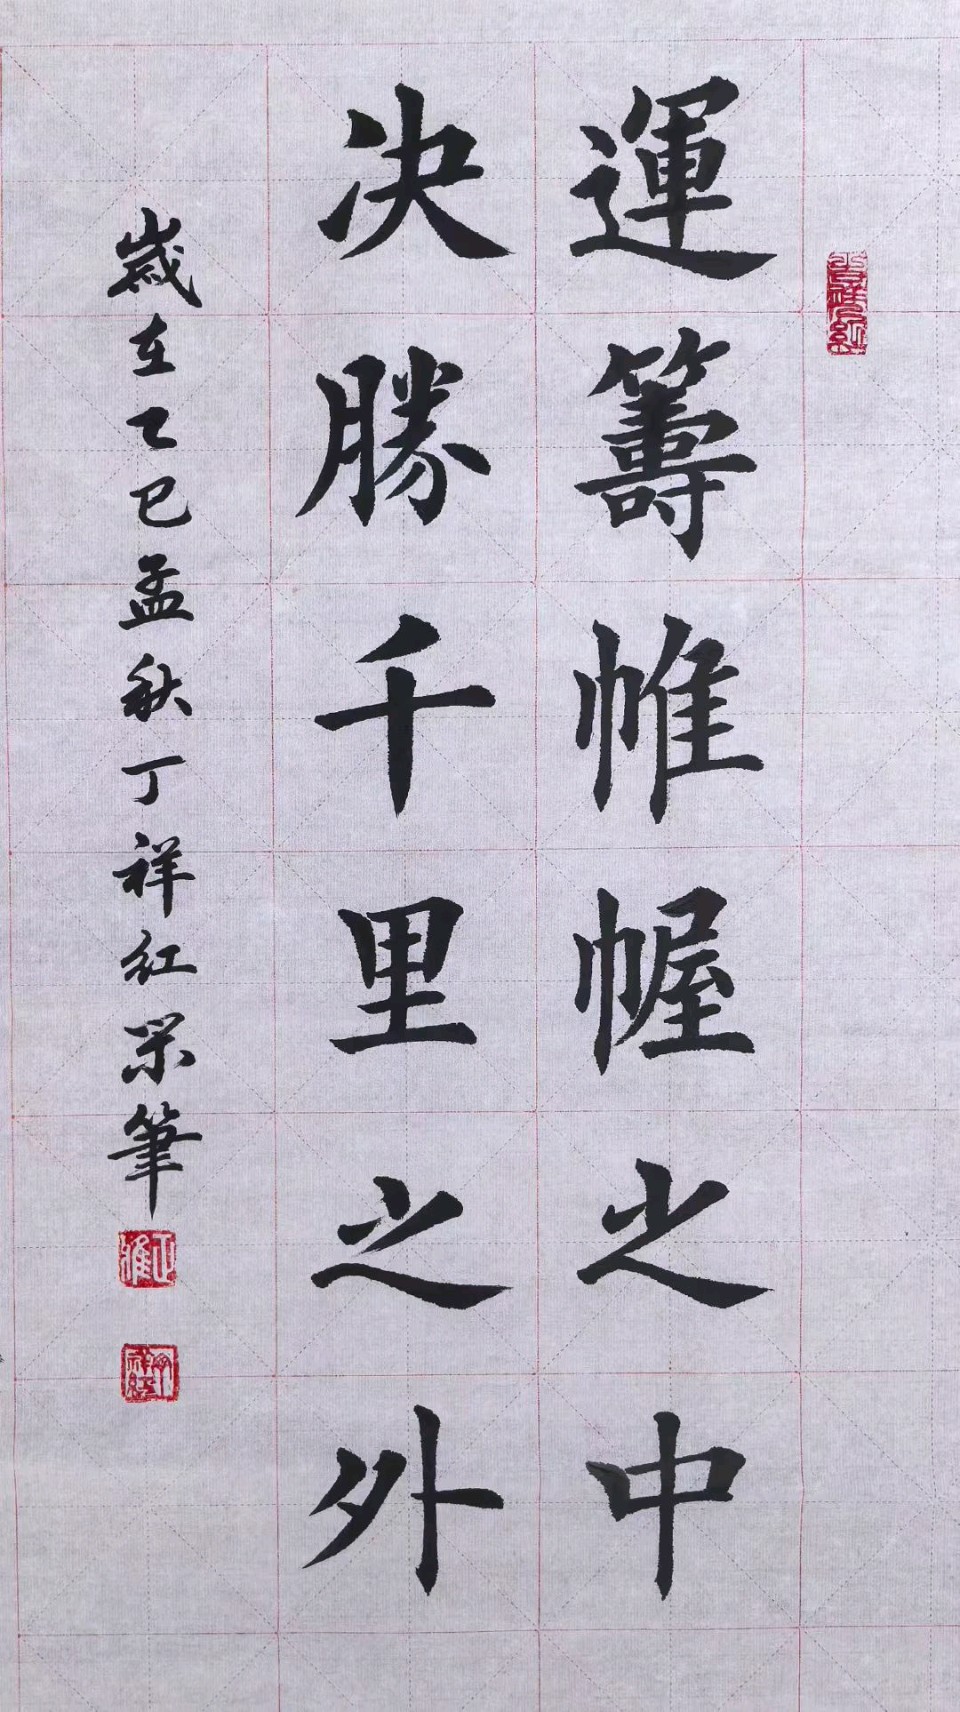 運籌帷幄之中
决勝千里之外
歲在乙巳孟秋丁祥红
筆